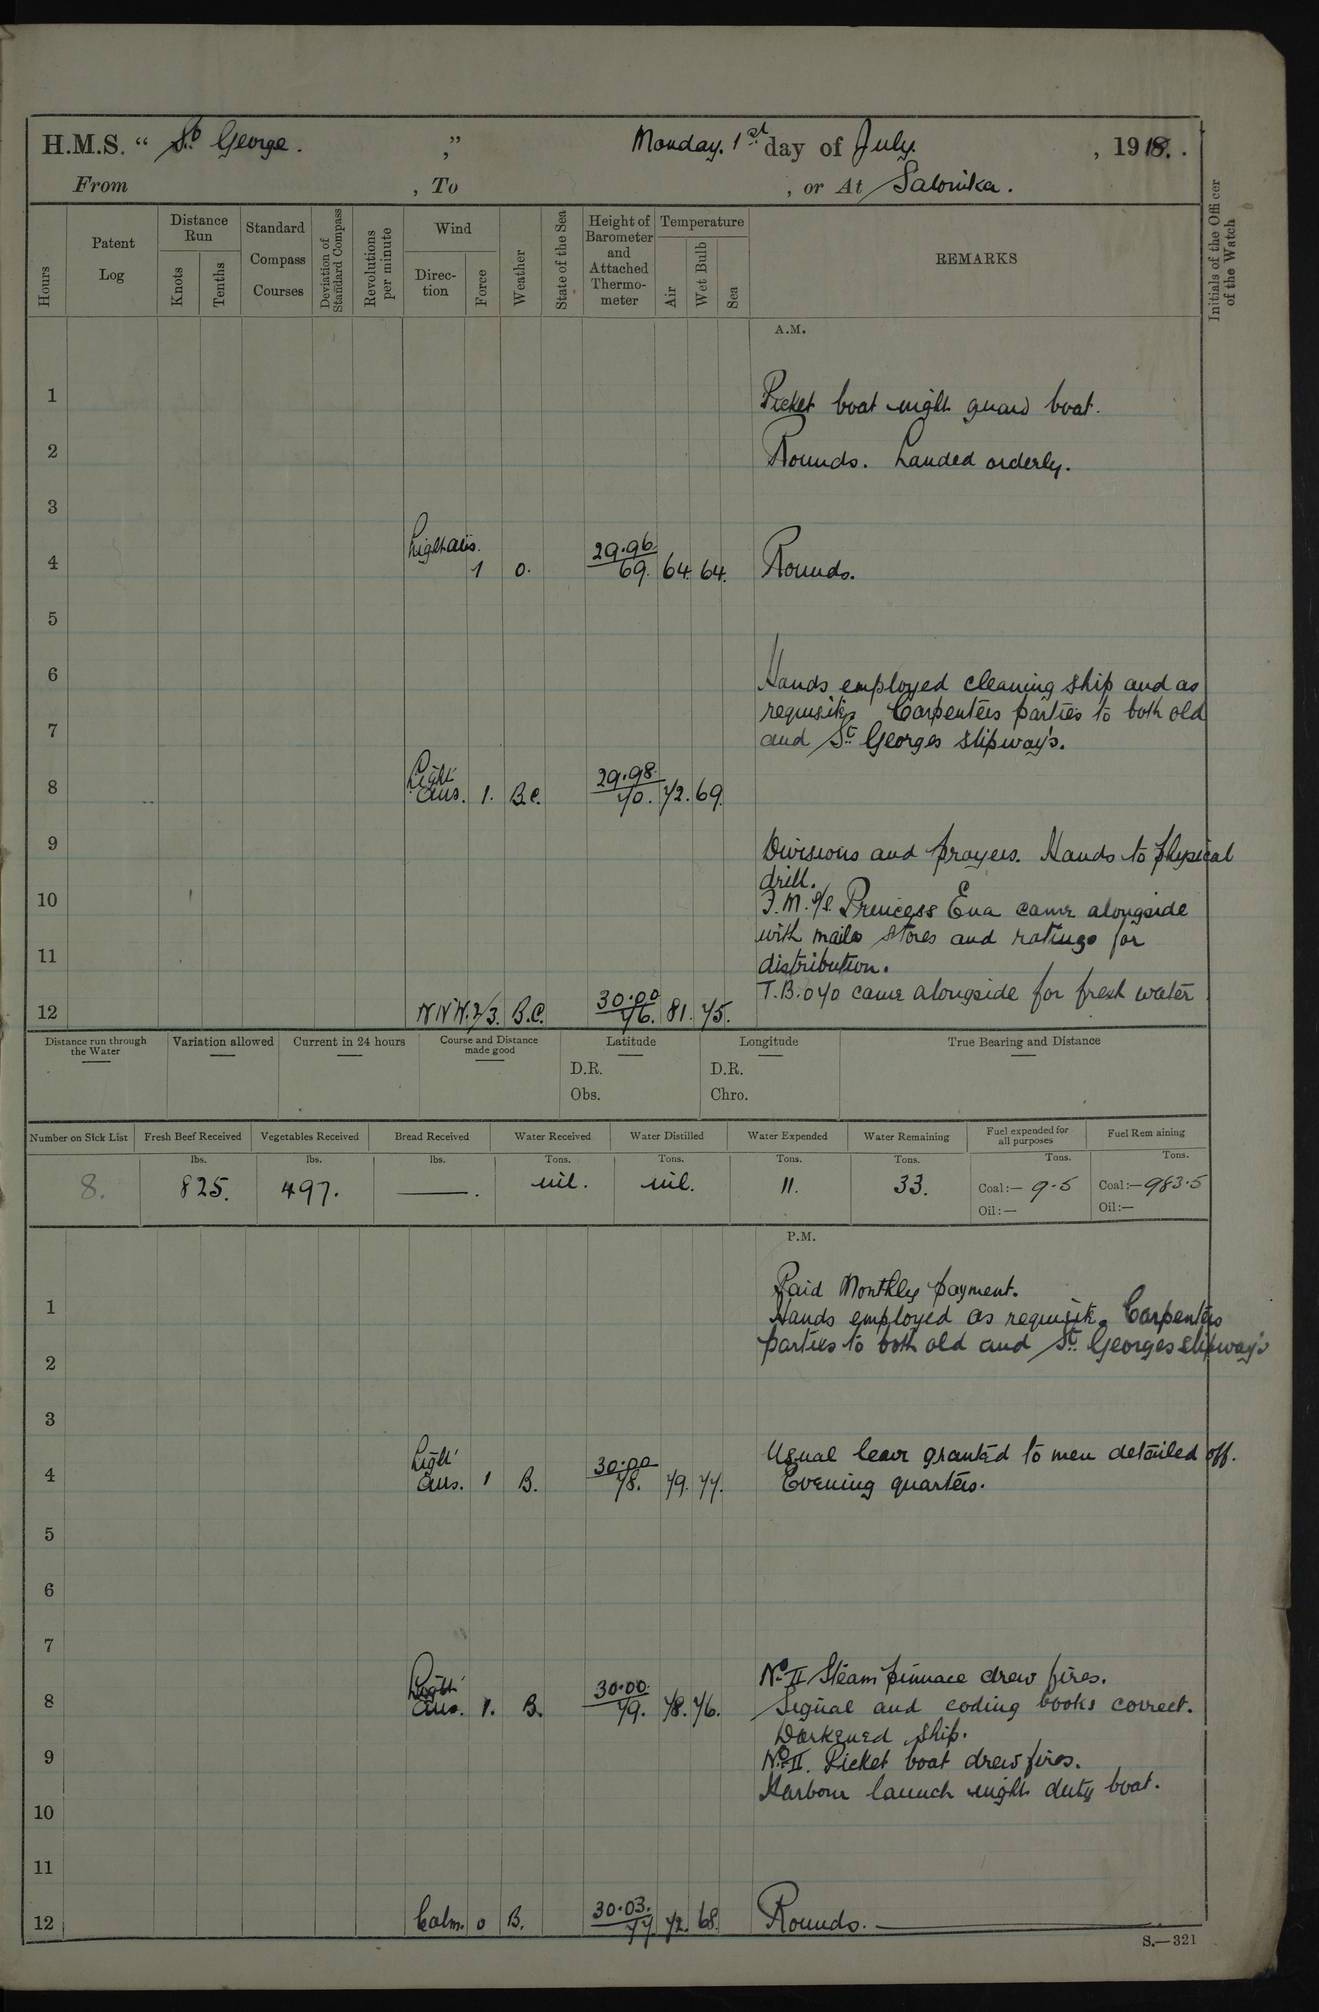 H.M.S. “ St. George. ” Monday. 1st day of July. , 1918.
From , To , or At Salonika.
Hours
Patent Log
Distance Run
Knots
Tenths
Standard Compass Courses
Deviation of Standard Compass
Revolutions per minute
Wind
Direc-tion
Force
Weather
State of the Sea
Height of Barometer and Attached Thermo-meter
Temperature
Air
Wet Bulb
Sea
REMARKS
Initials of the Officer of the Watch
A.M.
1 Picket boat night guard boat.
2 Rounds. Landed orderly.
3
4 Light airs. 1 O. 29.96 69. 64. 64. Rounds.
5
6 Hands employed cleaning ship and as
requisite, Carpenters parties to both old
7 and St. Georges slipway's.
8 Light airs. 1. B.C. 29.98. 70. 72. 69.
9 Divisions and prayers. Hands to physical
drill.
10 F.M. Princess Ena came alongside
with mails stores and ratings for
11 distribution.
T.B. 070 came alongside for fresh water
12 N N W. 2/3. B.C. 30.00 76. 81. 75.
Distance run through the Water
Variation allowed
Current in 24 hours
Course and Distance made good
Latitude
D.R.
Obs.
Longitude
D.R.
Chro.
True Bearing and Distance
Number on Sick List
Fresh Beef Received
Vegetables Received
Bread Received
Water Received
Water Distilled
Water Expended
Water Remaining
Fuel expended for all purposes
Fuel Remaining
lbs. lbs. lbs. Tons. Tons. Tons. Tons. Tons. Tons.
8. 825. 497. —. nil. nil. 11. 33. Coal:— 9.5 Coal:— 983.5
Oil:— Oil:—
P.M.
Paid Monthly payment.
1 Hands employed as requisite. Carpenters
2 parties to both old and St. Georges slipway's
3
Usual leave granted to men detailed off.
4 Light airs. 1 B. 30.00 78. 79. 77. Evening quarters.
5
6
7
No. II Steam pinnace drew fires.
8 Light airs. 1. B. 30.00. 79. 78. 76. Signal and coding books correct.
Darkened ship.
9 No. II. Picket boat drew fires.
Harbour launch night duty boat.
10
11
12 Calm. 0 B. 30.03. 77. 72. 68. Rounds. —
S.—321